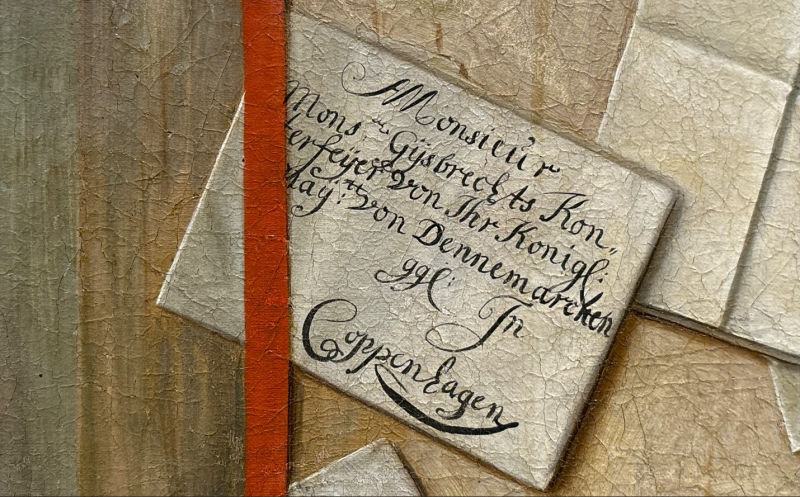 A Monsieur
Mons: Gÿsbrechts Kon„
terfeÿer von Ihr Königl:
Maÿ:tt von Dennemarcken
ggl: In
Coppenhagen